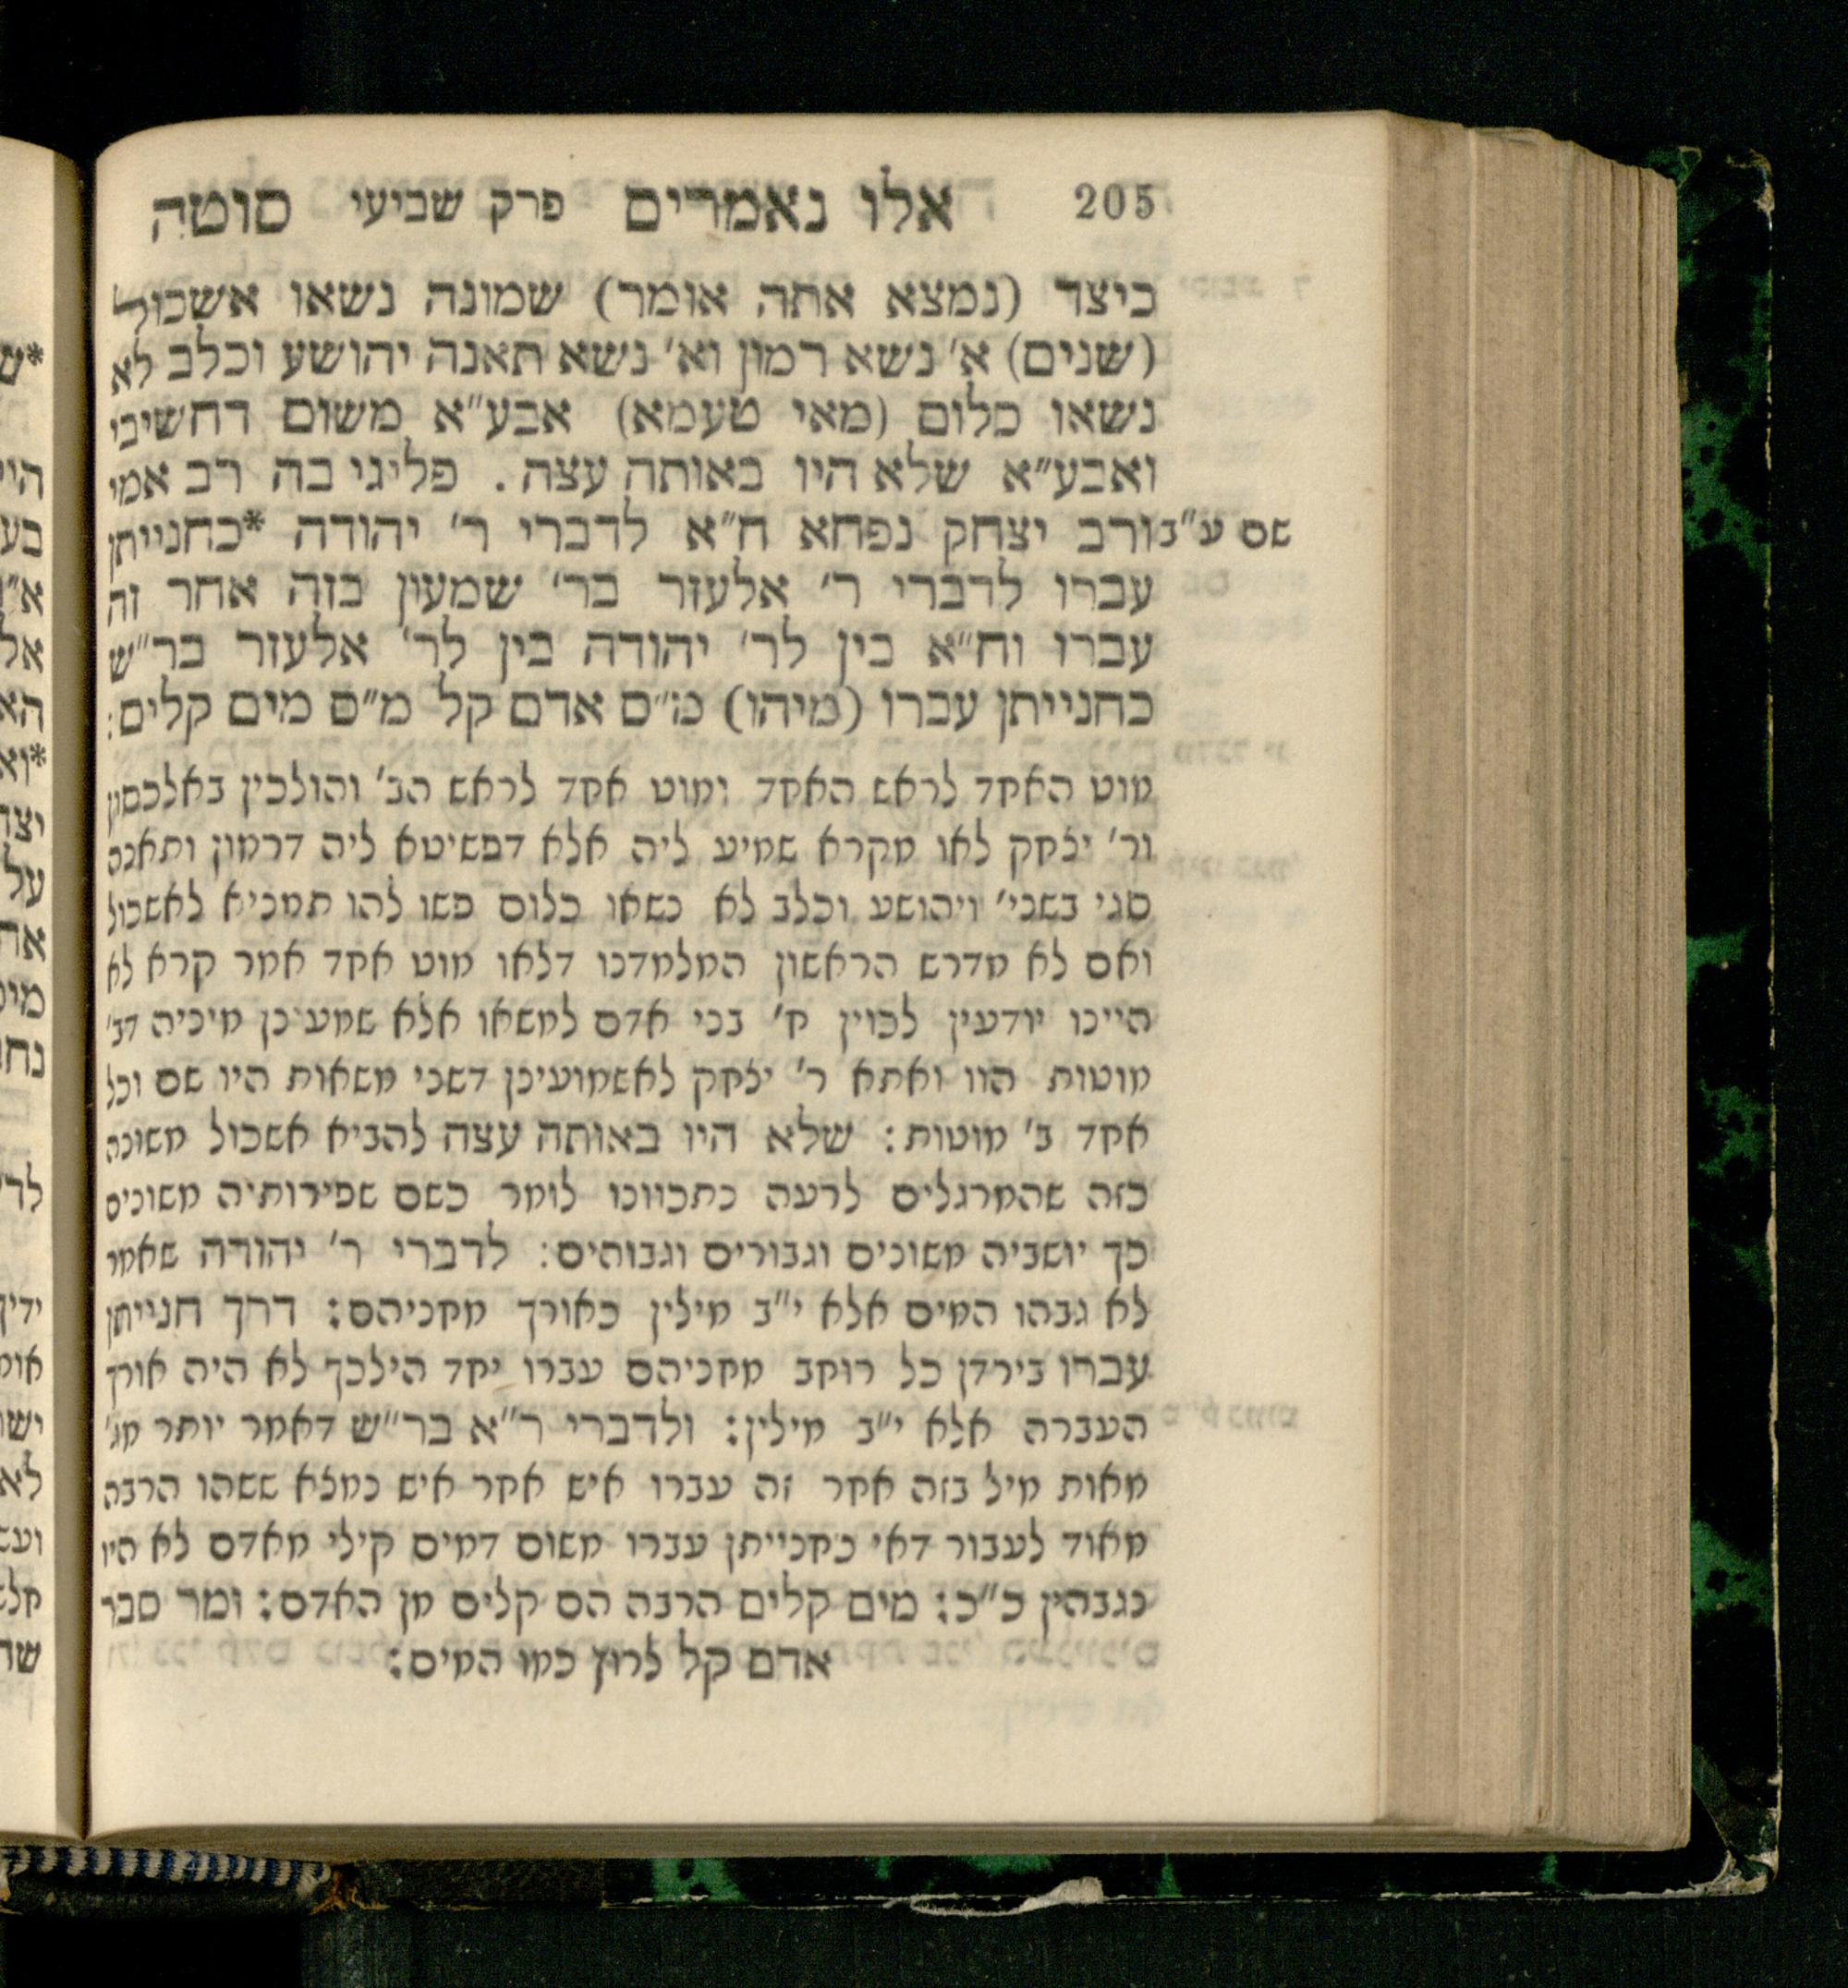 205 אלו נאמרים פרק שביעי סוטה
כיצד (נמצא אתה אומר) שמונה נשאו אשכול
(שנים) א׳ נשא רמון וא׳ נשא תאנה יהושע וכלב לא
נשאו כלום (מאי טעמא) אבע״א משום דחשיבי
ואבע״א שלא היו באותה עצה . פליגי בה רב אמי
שם ע״ב ורב יצחק נפחא ח״א לדברי ר׳ יהודה *כחנייתן
עברו לדברי ר׳ אלעזר בר׳ שמעון בזה אחר זה
עברו וח״א בין לר׳ יהודה בין לר׳ אלעזר בר״ש
כחנייתן עברו (מיהו) מ״ס אדם קל מ״ס מים קלים:
מוט האחד לראש האחד ומוט אחד לראש הב׳ והולכין באלכסון
ור׳ יצחק לאו מקרא שמיע ליה אלא דפשיטא ליה דרמון ותאנה
סגי בשני׳ ויהושע וכלב לא נשאו כלום פשו להו תמניא לאשכול
ואם לא מדרש הראשון המלמדנו דלאו מוט אחד אמר קרא לא
היינו יודעין לכוין ח׳ בני אדם למשאו אלא שמעינן מיניה דב׳
מוטות הוו ואתא ר׳ יצחק לאשמועינן דשני משאות היו שם וכל
אחד ב׳ מוטות: שלא היו באותה עצה להביא אשכול משונה
כזה שהמרגלים לרעה נתכוונו לומר כשם שפירותיה משונים
כך יושביה משונים וגבורים וגבוהים: לדברי ר׳ יהודה שאמר
לא גבהו המים אלא י״ב מילין כאורך מחניהם: דרך חנייתן
עברו בירדן כל רוחב מחניהם עברו יחד הילכך לא היה אורך
העברה אלא י״ב מילין: ולדברי ר״א בר״ש דאמר יותר מג׳
מאות מיל בזה אחר זה עברו איש אחר איש נמצא ששהו הרבה
מאוד לעבור דאי כחנייתן עברו משום דמים קילי מאדם לא היו
נגבהין כ״כ: מים קלים הרבה הם קלים מן האדם: ומר סבר
אדם קל לרוץ כמו המים: